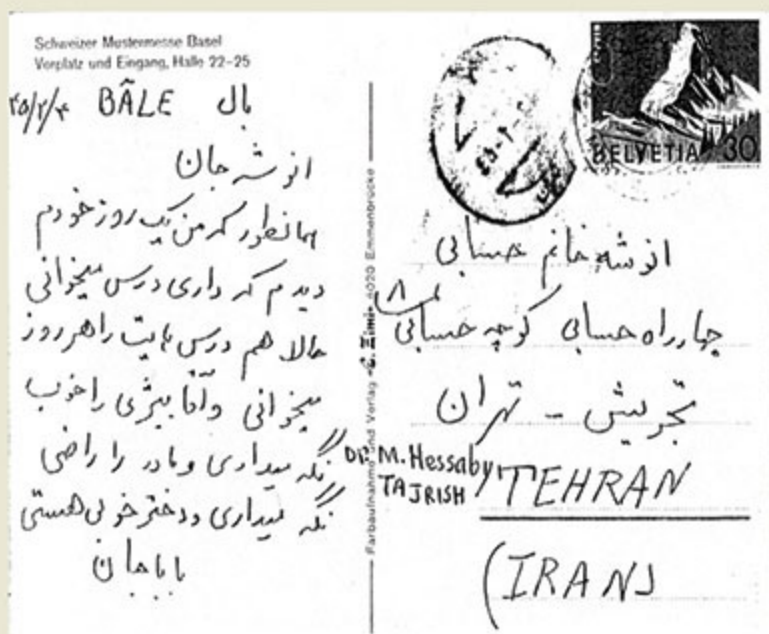 Schweizer Mustermesse Basel
Vorplatz und Eingang, Halle 22-25
۴۵/۲/۴ BÂLE بال
انوشه جان
همانطور که من یک روز خودم
دیدم که داری درس میخوانی
حالا هم درس هایت را هر روز
میخوانی و آقا بیژی را خوب
نگه میداری و مادر را راضی
نگه میداری و دختر خوبی هستی
بابا جان
Farbaufnahme und Verlag C. Zimi, 6020 Emmenbrücke
HELVETIA 30
انوشه خانم حسابی
چهارراه حسابی کوچه حسابی ۸
تجریش - تهران
Dr. M. Hessaby
TAJRISH
TEHRAN
(IRAN)